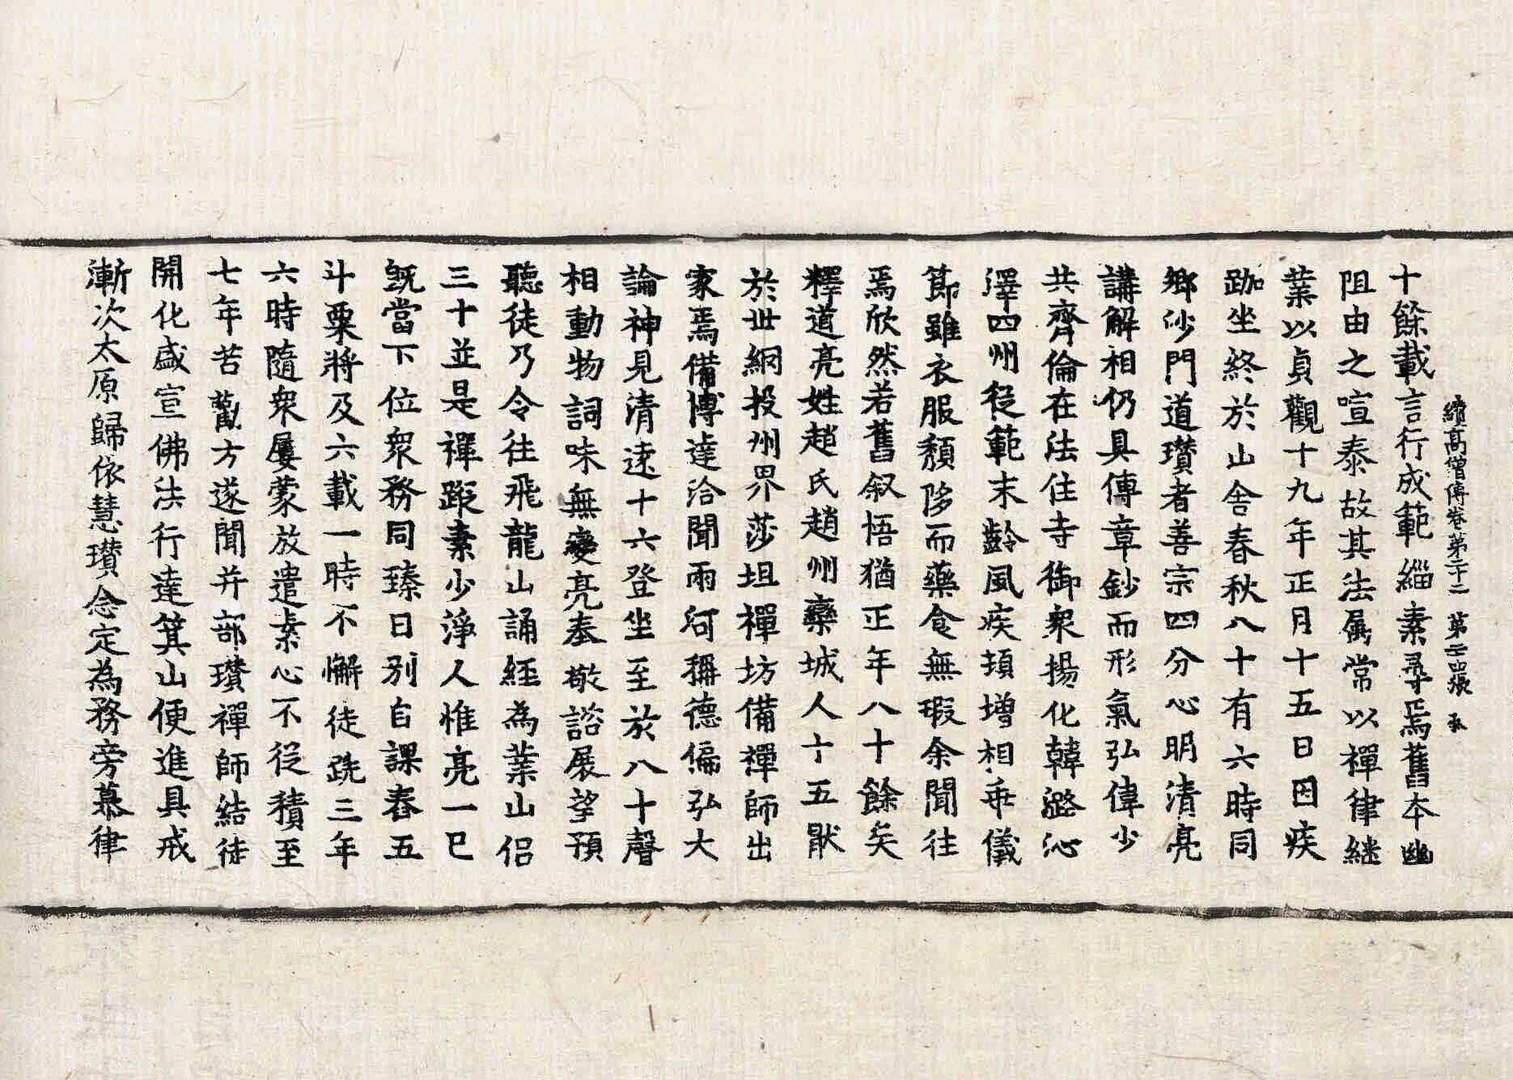 續高僧傳卷第二十二　第二十張　承
十餘載言行成範緇素尋焉舊本幽
阻由之喧泰故其法属常以禪律継
業以貞觀十九年正月十五日因疾
跏坐終於山舍春秋八十有六時同
郷沙門道瓚者善宗四分心明清亮
講解相仍具傳章鈔而形氣弘偉少
共齊倫在法住寺御衆揚化韓潞沁
澤四州從範末齡風疾頓増相乖儀
節雖衣服頽陊而藥食無瑕余聞往
焉欣然若舊叙悟猶正年八十餘矣
釋道亮姓趙氏趙州欒城人十五猒
於世網投州界莎坦禪坊備禪師出
家焉備博達洽聞兩河稱德偏弘大
論神見清遠十六登坐至於八十聲
相動物詞味無變亮奉敬諮展望預
聽徒乃令往飛龍山誦經為業山侣
三十並是禪蹤素少淨人惟亮一已
既當下位衆務同臻日别自課舂五
斗粟將及六載一時不懈徒跣三年
六時隨衆屢蒙放遣素心不從積至
七年苦勸方遂聞并部瓚禪師結徒
開化盛宣佛法行達箕山便進具戒
漸次太原歸依慧瓚念定為務旁慕律